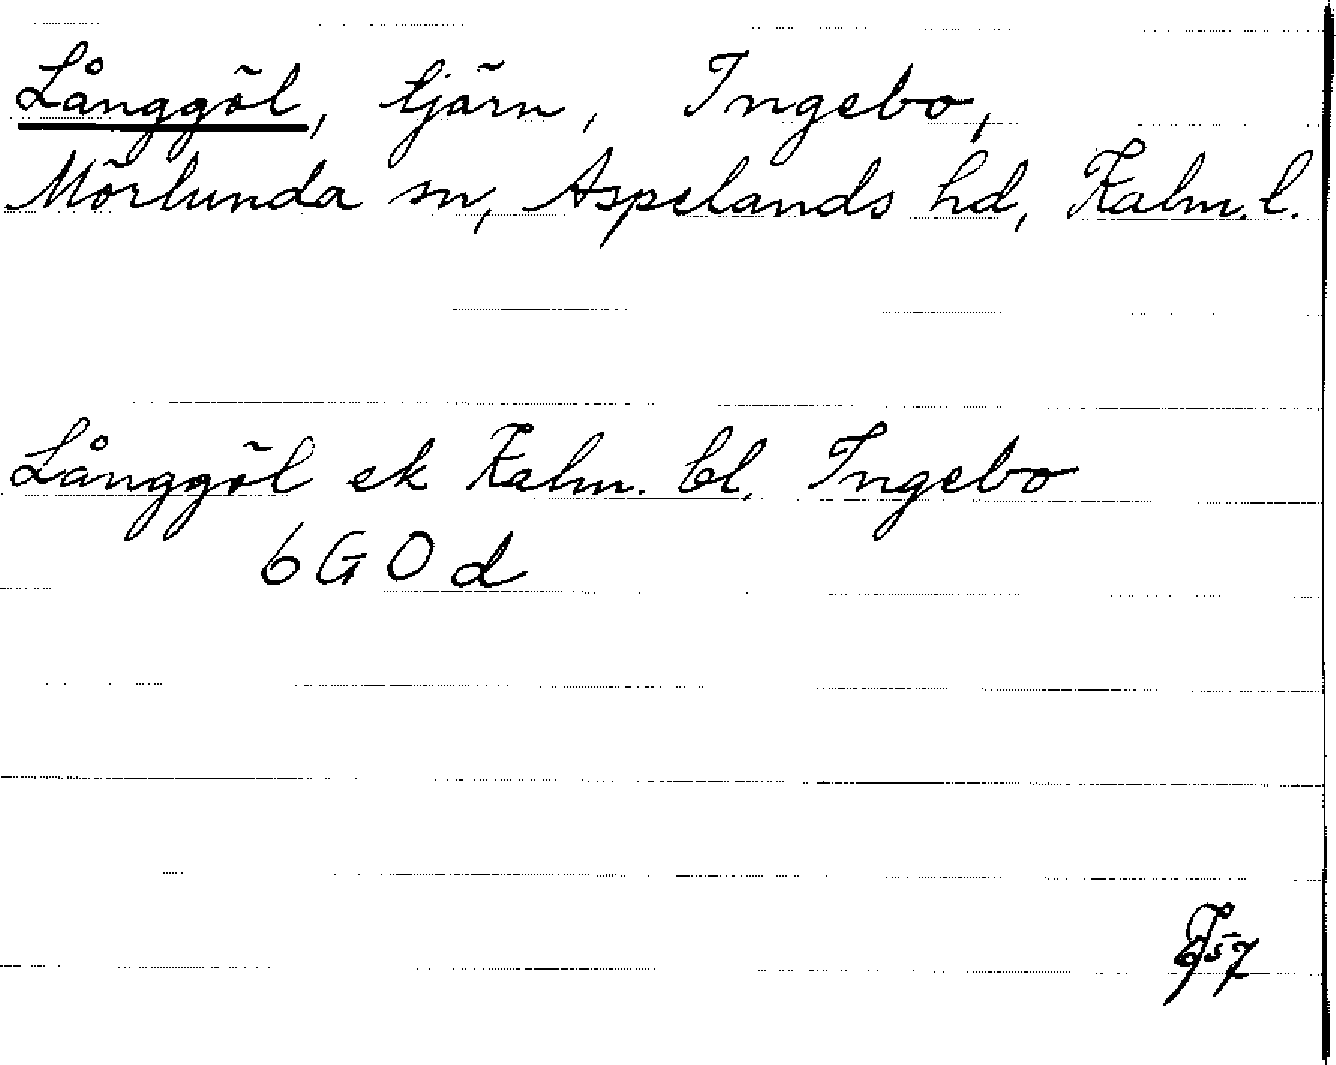 Långgöl, tjärn, Ingebo,
Mörlunda sn, Aspelands hd, Kalm. l.
Långgöl ek Kalm. bl. Ingebo
6 G 0 d